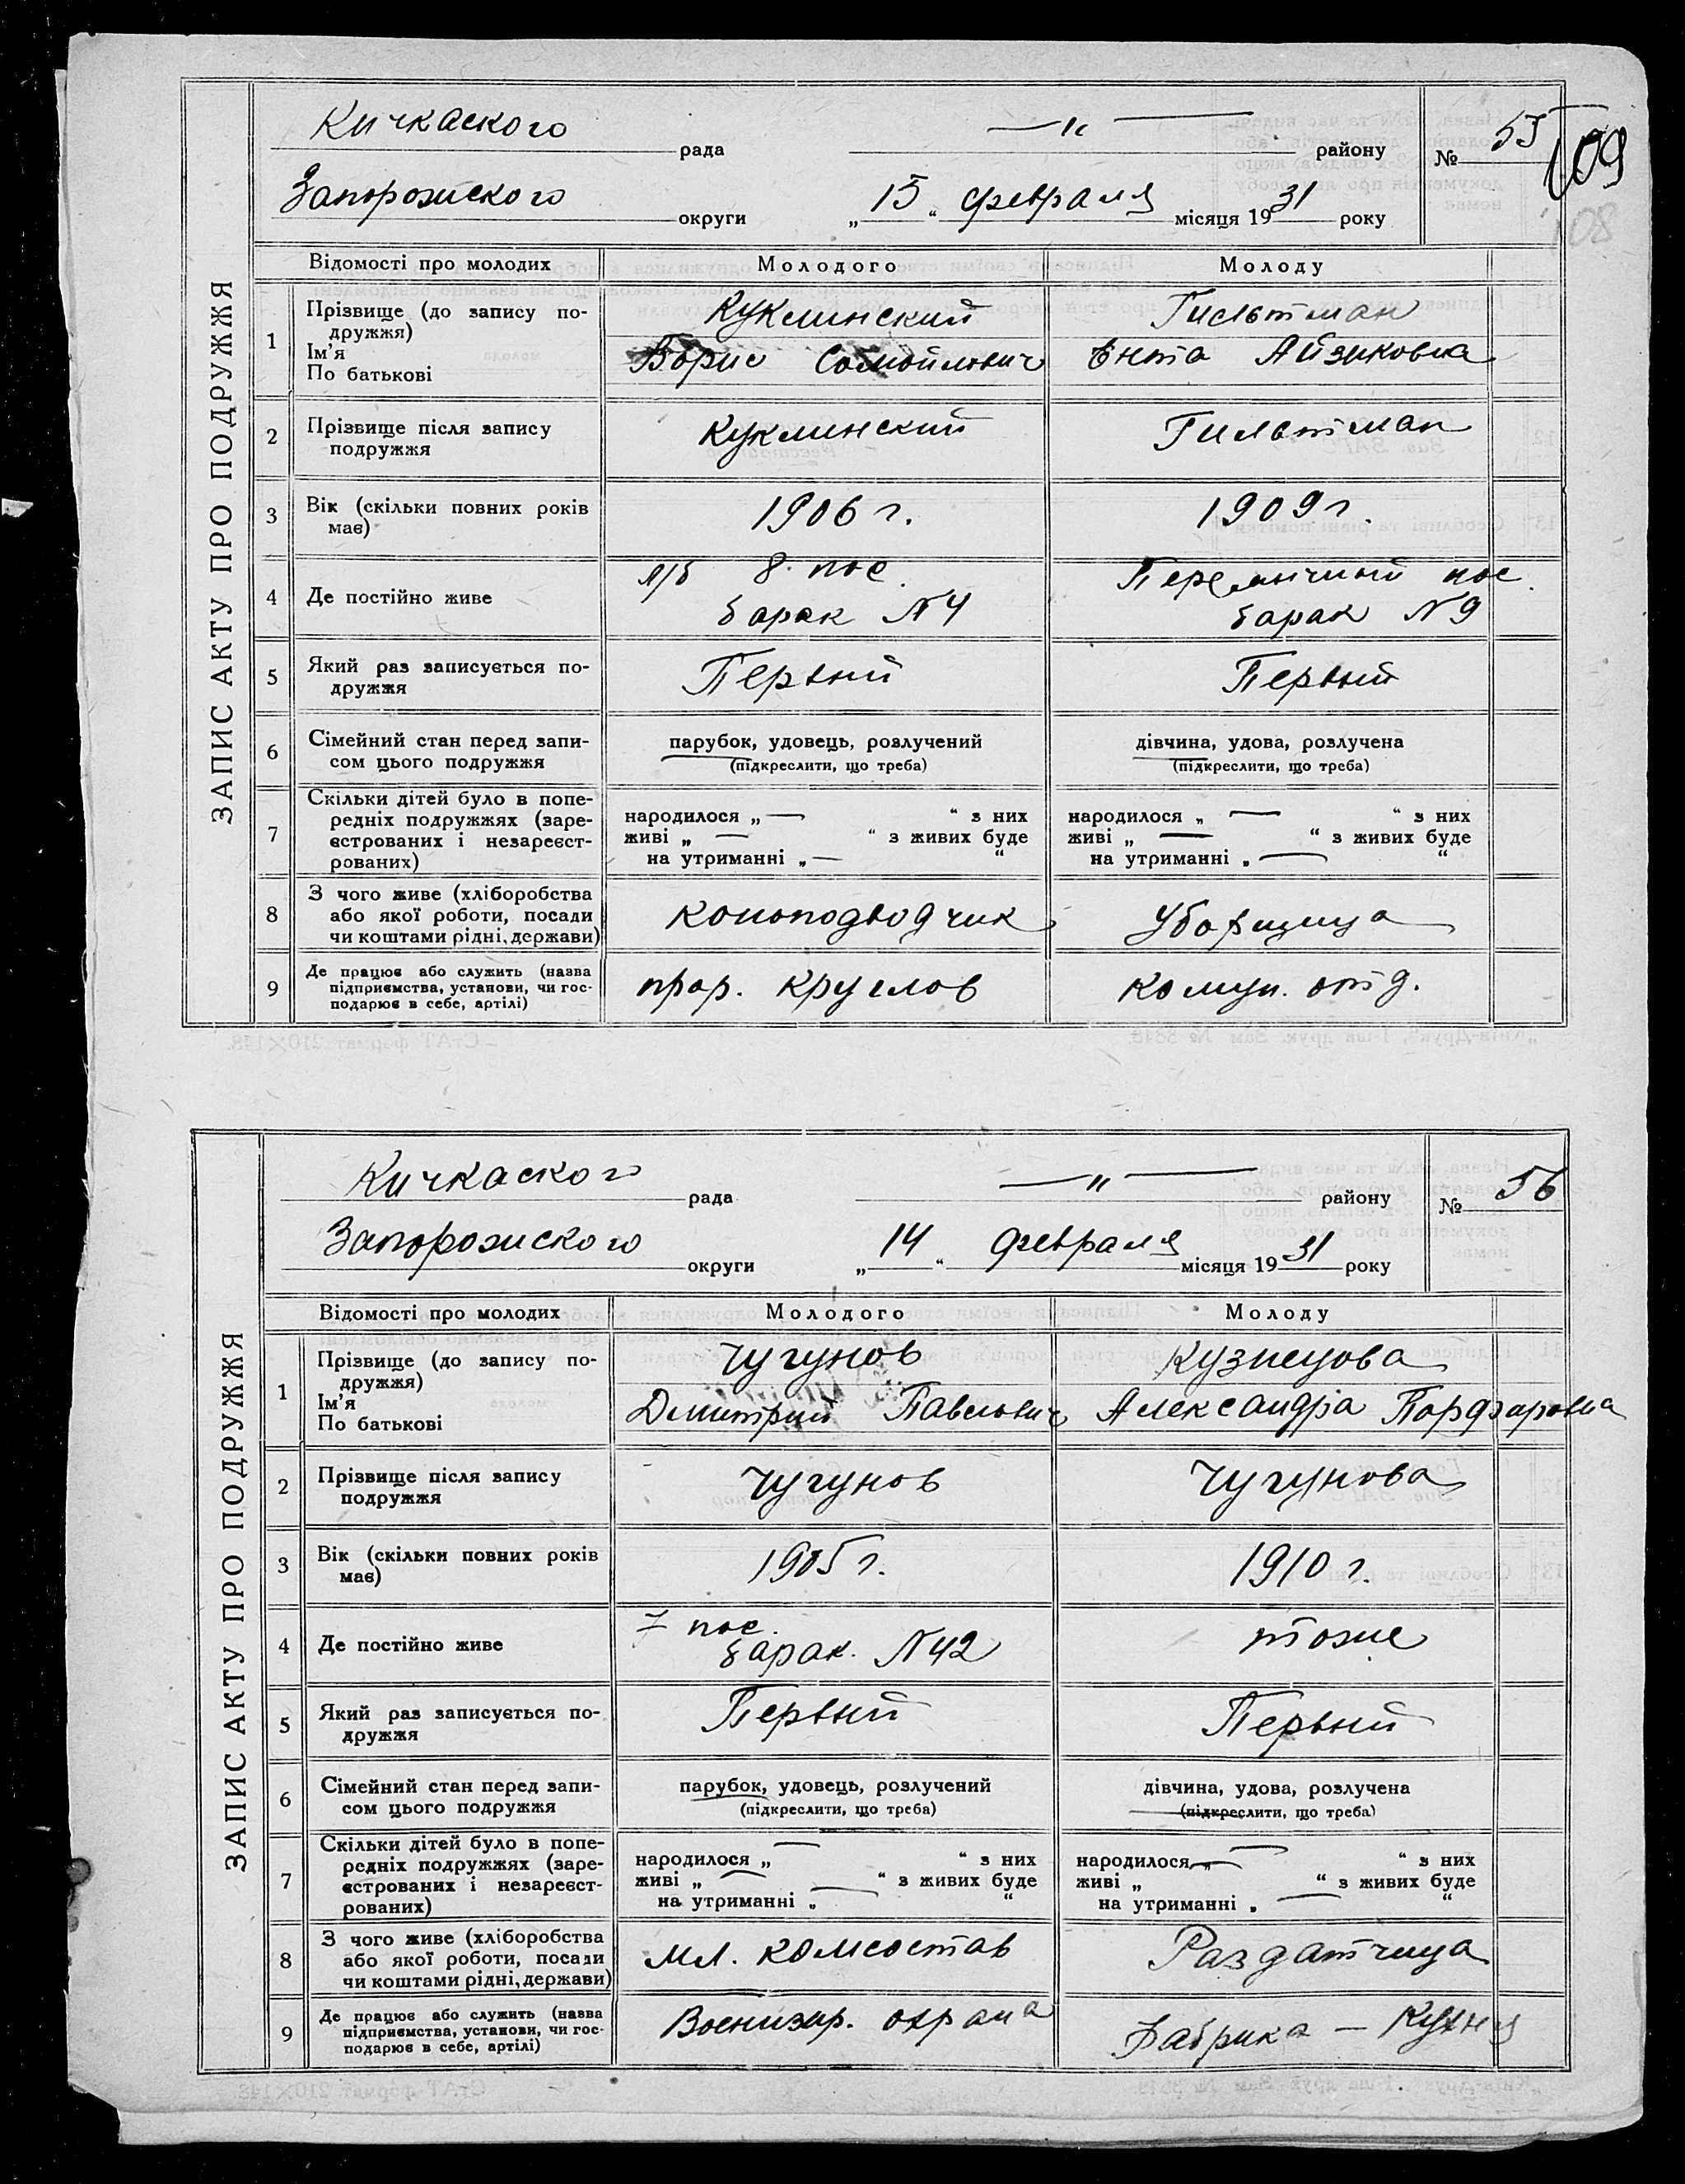 ЗАПИС АКТУ ПРО ПОДРУЖЖЯ
Кичкаского рада —"— району № 55
109
108
Запорожского округи „15“ февраля місяця 1931 року
Відомості про молодих Молодого Молоду
1 Прізвище (до запису подружжя) Куклинский Гильтман
Ім'я По батькові Борис Самойлович Ента Айзиковна
2 Прізвище після запису подружжя Куклинский Гильтман
3 Вік (скільки повних років має) 1906 г. 1909 г.
4 Де постійно живе л/б 8 пос. Перемычный пос.
барак №4 барак №9
5 Який раз записується подружжя Первый Первый
6 Сімейний стан перед записом цього подружжя парубок, удовець, розлучений дівчина, удова, розлучена
(підкреслити, що треба) (підкреслити, що треба)
7 Скільки дітей було в попередніх подружжях (зареєстрованих і незареєстрованих)
народилося „— “ з них народилося „— “ з них
живі „— “ з живих буде живі „— “ з живих буде
на утриманні „— “ на утриманні „— “
8 З чого живе (хліборобства або якої роботи, посади чи коштами рідні, держави) Коноподводчик Уборщица
9 Де працює або служить (назва підприємства, установи, чи господарює в себе, артілі) прор. Круглов Комун. отд.
ЗАПИС АКТУ ПРО ПОДРУЖЖЯ
Кичкаского рада —"— району № 56
Запорожского округи „14“ февраля місяця 1931 року
Відомості про молодих Молодого Молоду
1 Прізвище (до запису подружжя) Чугунов Кузнецова
Ім'я По батькові Дмитрий Павлович Александра Парфировна
2 Прізвище після запису подружжя Чугунов Чугунова
3 Вік (скільки повних років має) 1905 г. 1910 г.
4 Де постійно живе 7 пос. тоже
барак. №42
5 Який раз записується подружжя Первый Первый
6 Сімейний стан перед записом цього подружжя парубок, удовець, розлучений дівчина, удова, розлучена
(підкреслити, що треба) (підкреслити, що треба)
7 Скільки дітей було в попередніх подружжях (зареєстрованих і незареєстрованих)
народилося „— “ з них народилося „— “ з них
живі „— “ з живих буде живі „ “ з живих буде
на утриманні „— “ на утриманні „— “
8 З чого живе (хліборобства або якої роботи, посади чи коштами рідні, держави) мл. комсостав Раздатчица
9 Де працює або служить (назва підприємства, установи, чи господарює в себе, артілі) Военизир. охрана Фабрика — Кухня